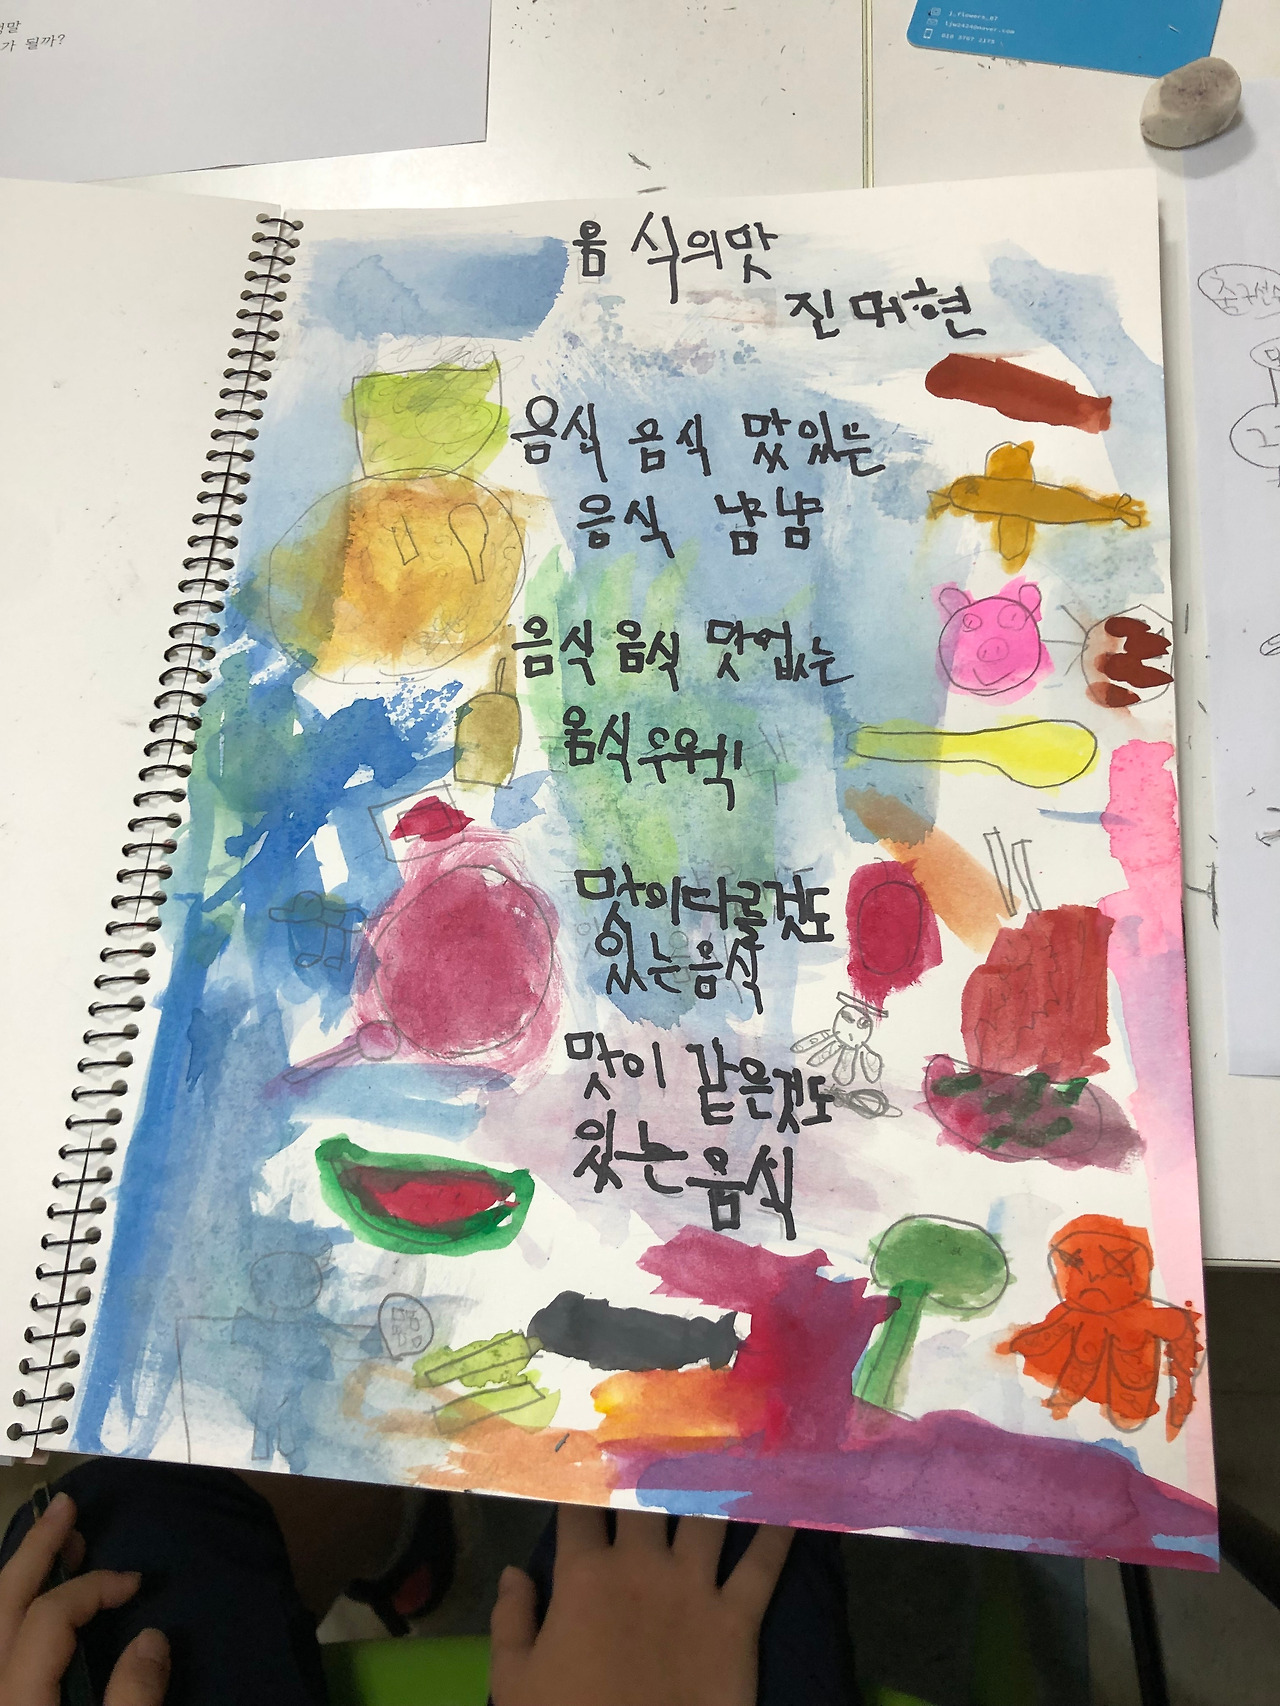 가 될까?
j.flowers_87
음식의맛
음식 음식 맛있는
음식 냠냠
음식 음식 맛없는
음식 우웩!
맛이다른것도
있는음식
맛이 같은것도
있는음식